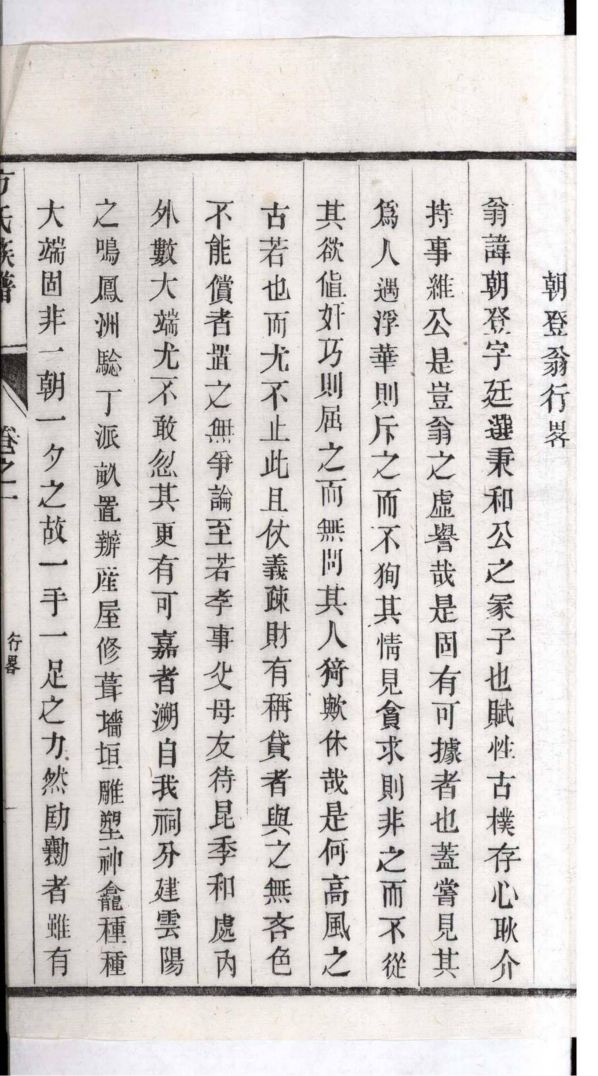 朝登翁行畧
翁諱朝登字廷選秉和公之冢子也賦性古樸存心耿介
持事維公是豈翁之虛譽哉是固有可據者也蓋嘗見其
爲人遇浮華則斥之而不狥其情見貪求則非之而不從
其欲值奸巧則屈之而無問其人猗歟休哉是何高風之
古若也而尤不止此且仗義疎財有稱貸者與之無吝色
不能償者置之無爭論至若孝事父母友待昆季和處內
外數大端尤不敢忽其更有可嘉者溯自我祠分建雲陽
之鳴鳳洲騐丁派畝置辦産屋修葺墻垣雕塑神龕種種
大端固非一朝一夕之故一手一足之力然劻勷者雖有
方氏族譜
卷之一
行畧